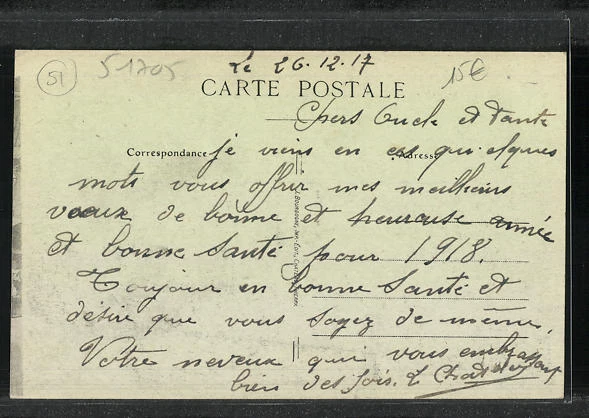 51
51705
Le 26.12.17
15€
CARTE POSTALE
Chers Oncle et Tante
Correspondance
Adresse
je viens en ces quelques
mots vous offrir mes meilleurs
vœux de bonne et heureuse année
et bonne Santé pour 1918.
Toujour en bonne Santé et
désire que vous soyez de même.
Votre neveux qui vous embrassent
bien des fois.